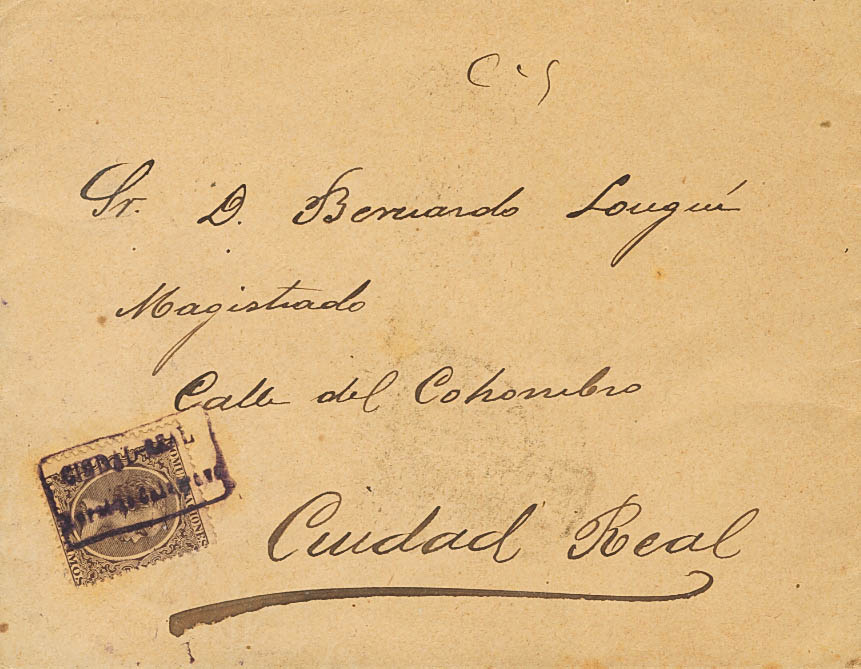 Sr. D. Bernardo Longué
Magistrado
Calle del Cohombro
CIUDAD-REAL
COMUNICACIONES
Ciudad Real